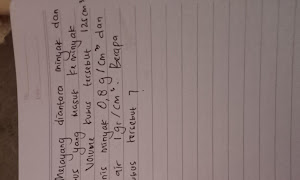 Melayang diantara minyak dan
us yang masuk ke minyak
Volume kubus tersebut 125 cm³
nis minyak 0,8 g/cm³ dan
air 1 gr/cm³. Berapa
ubus tersebut ?